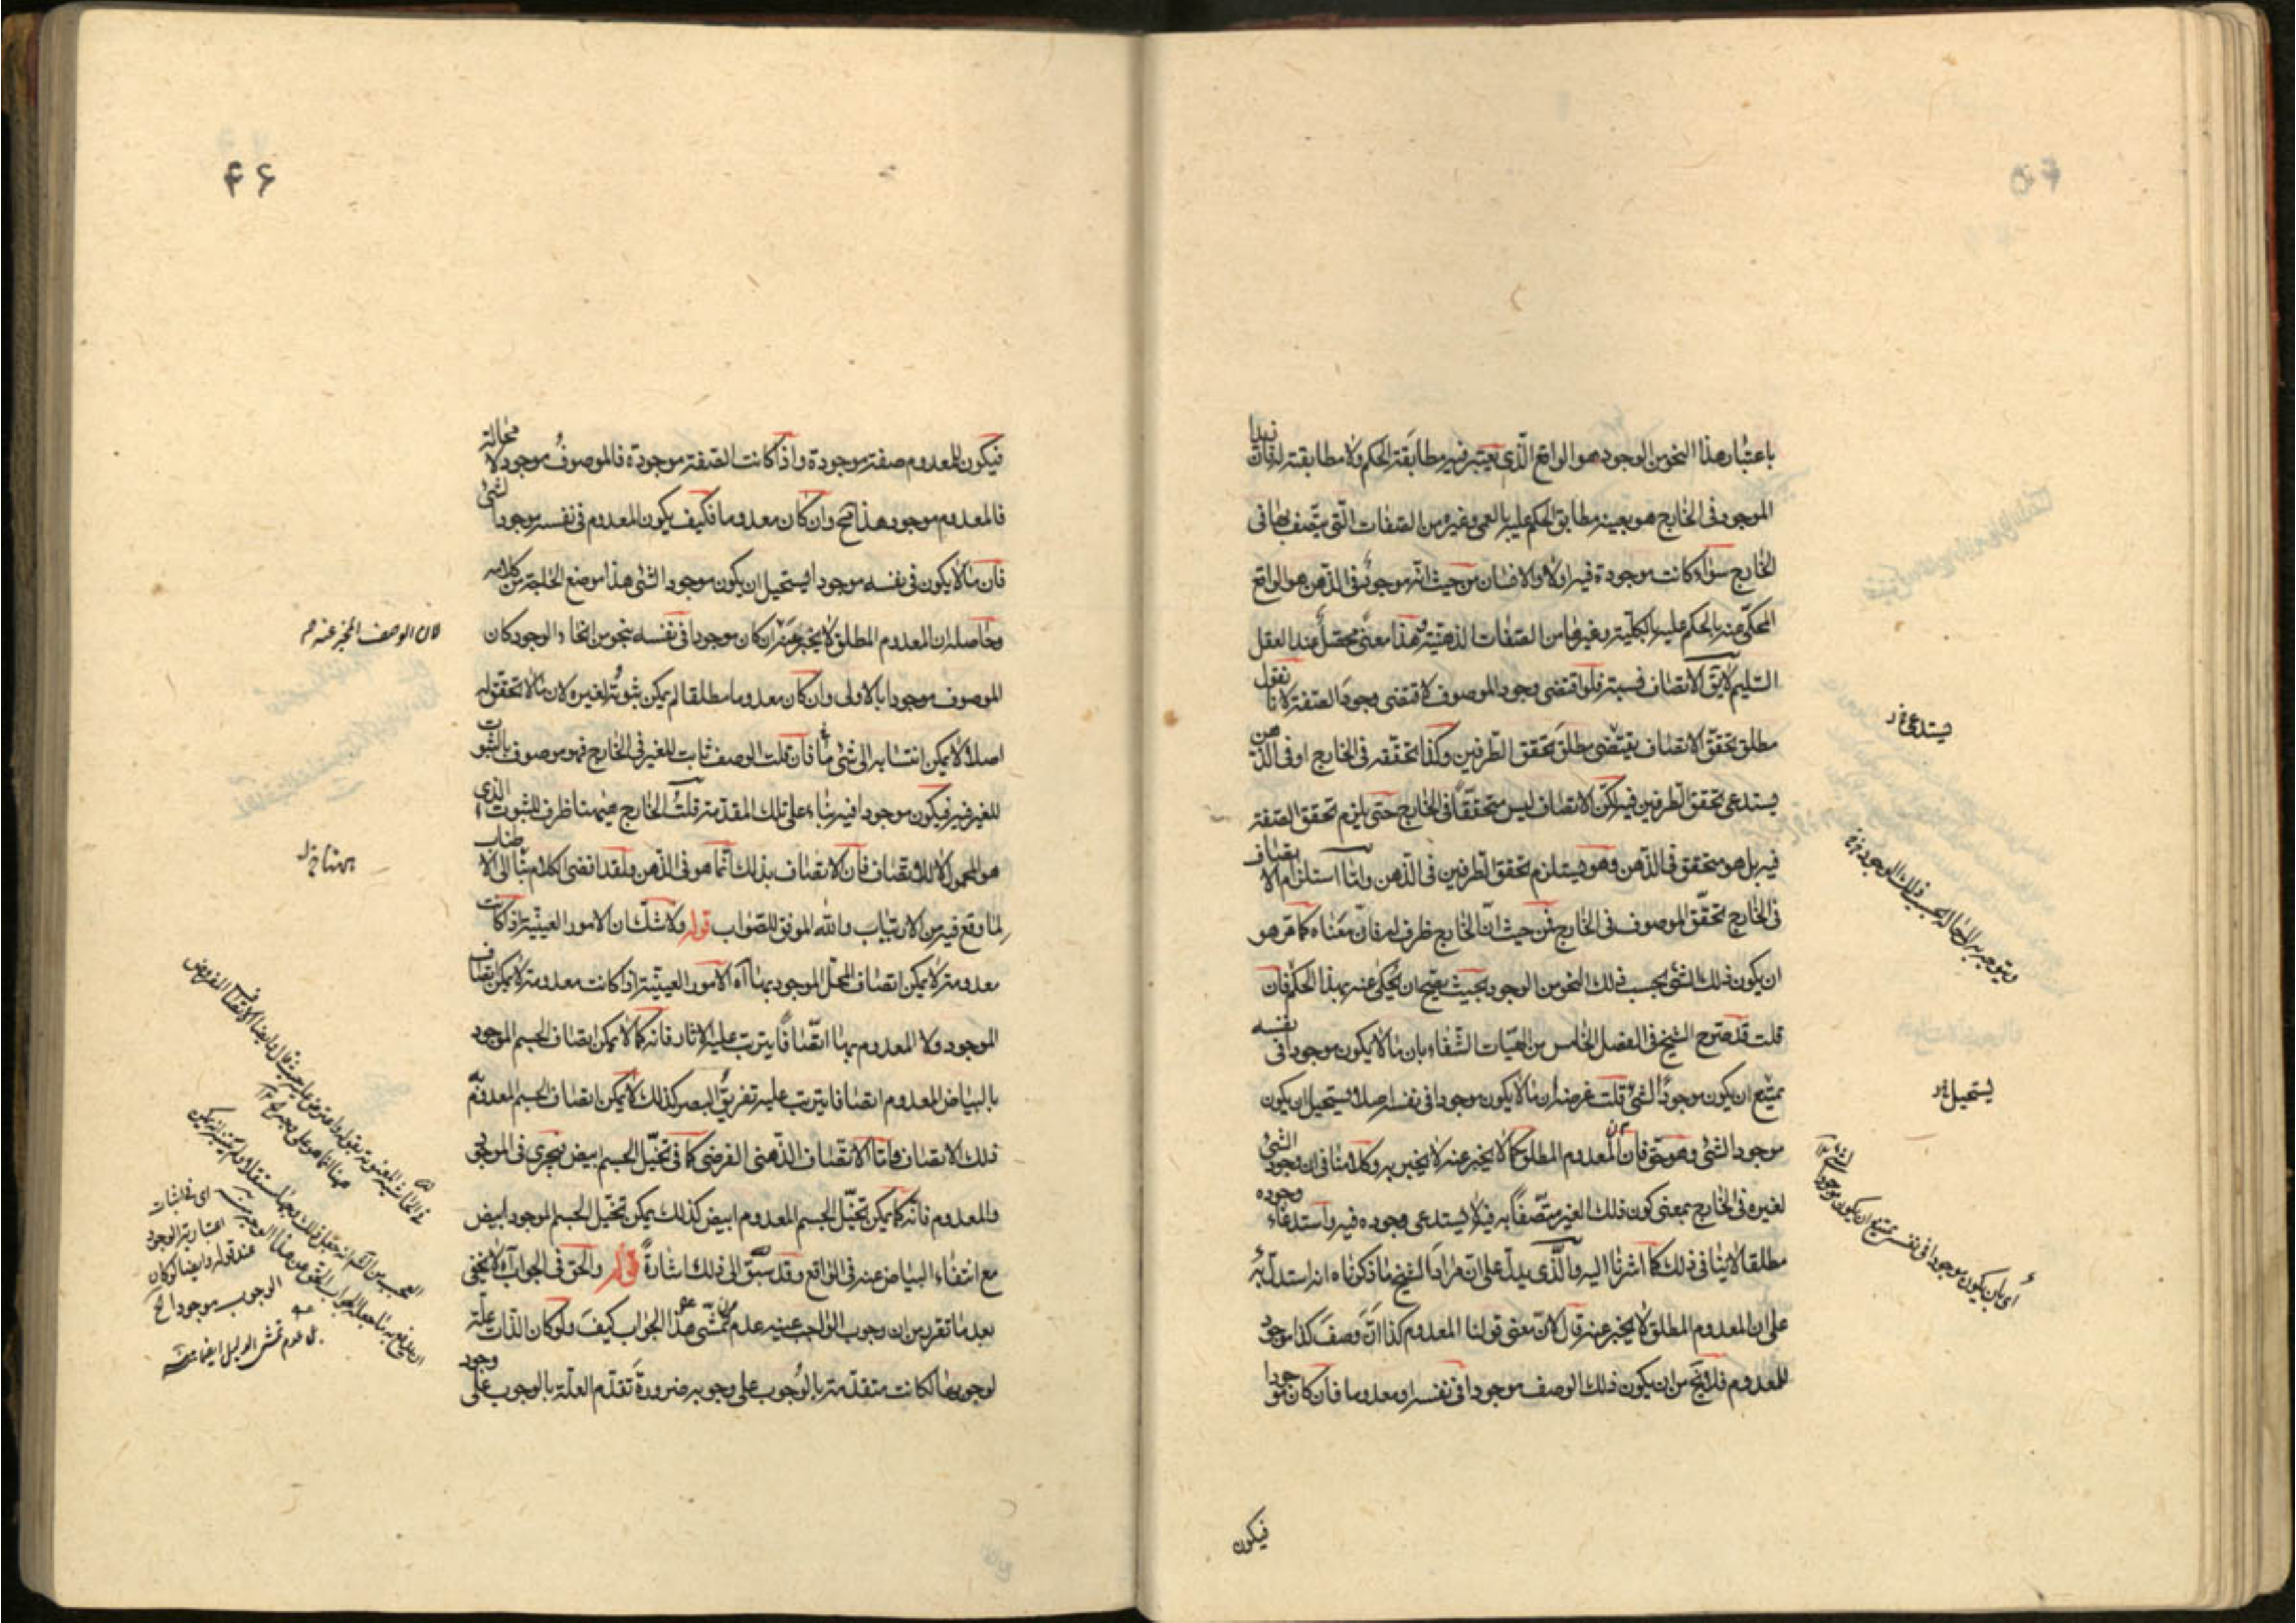 باعتبار هذا النحو من الوجود هو الواقع الذى يعتبر فيه مطابقة الحكم ولا مطابقته له فان زيدا
الموجود فى الخارج هو بعينه مطابق الحكم عليه بالعمى وغيره من الصفات التى يتصف بها فى
الخارج سواء كانت موجودة فيه او لا والانسان من حيث انه موجود فى الذهن هو الواقع
المحكى عنه بالحكم عليه بالكلية وغيرها من الصفات الذهنية وهذا معنى محصل عند العقل
السليم لا يق الاتصاف نسبة فلو اقتضى وجود الموصوف لاقتضى وجود الصفة لانا نقول
مطلق تحقق الاتصاف يقتضى مطلق تحقق الطرفين وكذا تحققه فى الخارج او فى الذهن
يستدعى تحقق الطرفين فيه لكن الاتصاف ليس متحققا فى الخارج حتى يلزم تحقق الصفة
فيه بل هو متحقق فى الذهن وهو يستلزم تحقق الطرفين فى الذهن واما استلزام الاتصاف
فى الخارج تحقق الموصوف فى الخارج فمن حيث ان الخارج ظرف له فان معناه كما مر هو
ان يكون ذلك الشئ بحسب ذلك النحو من الوجود بحيث يصح ان يحكى عنه بهذا الحكم فان
قلت قد صرح الشيخ فى الفصل الخامس من الهيات الشفاء بان ما لا يكون موجودا فى نفسه
يمتنع ان يكون موجودا لشئ قلت غرضه ان ما لا يكون موجودا فى نفسه اصلا يستحيل ان يكون
موجودا لشئ وهو حق فان المعدوم المطلق كما لا يخبر عنه لا يخبر به وكلامنا فى ان وجود الشئ
لغيره فى الخارج بمعنى كون ذلك الغير متصفا به فيه لا يستدعى وجوده فيه واستدعاء وجوده
مطلقا لا ينافى ذلك كما اشرنا اليه والذى يدل على ان مراد الشيخ ما ذكرناه انه استدل به
على ان المعدوم المطلق لا يخبر عنه قال لان معنى قولنا المعدوم كذا ان وصف كذا موجود
للمعدوم فلا يخ من ان يكون ذلك الوصف موجودا فى نفسه او معدوما فان كان موجودا
يستدعى
ويتوجه
يستحيل
اى بان يكون موجودا فى نفسه يمتنع ان يكون موجودا
فيكون
۴۶
فيكون للمعدوم صفة موجودة واذا كانت الصفة موجودة فالموصوف موجود لا محالة
فالمعدوم موجود هذا مح وان كان معدوما فكيف يكون المعدوم فى نفسه موجودا لشئ
فان ما لا يكون فى نفسه موجودا يستحيل ان يكون موجودا لشئ هذا موضع الحاجة من كلامه
وحاصله ان المعدوم المطلق لا يخبر عنه ان كان موجودا فى نفسه بنحو من انحاء الوجود كان
الموصوف موجودا بالاولى وان كان معدوما مطلقا لم يمكن ثبوته لغيره لان ما لا تحقق له
اصلا لا يمكن انتسابه الى شئ ما فان قلت الوصف ثابت للغير فى الخارج فهو موصوف بالثبوت
للغير فيه فيكون موجودا فيه بناء على تلك المقدمة قلت الخارج ههنا ظرف للثبوت الذى
هو المحمول لا للاتصاف فان الاتصاف بذلك انما هو فى الذهن ولقد افضى الكلام منا الى الاطناب
لما وقع فيه من الارتياب والله الموفق للصواب قوله ولا شك ان الامور العينية اذا كانت
معدومة لا يمكن اتصاف المحل الموجود بها اه الامور العينية اذا كانت معدومة لا يمكن اتصاف
الموجود ولا المعدوم بها اتصافا يترتب عليه الاثار فانه كما لا يمكن اتصاف الجسم الموجود
بالبياض المعدوم اتصافا يترتب عليه تفريق البصر كذلك لا يمكن اتصاف الجسم المعدوم به
ذلك الاتصاف واما الاتصاف الذهنى الفرضى كما فى تخيل الجسم ابيض فيجرى فى الموجود
والمعدوم فانه كما يمكن تخيل الجسم المعدوم ابيض كذلك يمكن تخيل الجسم الموجود ابيض
مع انتفاء البياض عنه فى الواقع وقد سبق الى ذلك اشارة قوله والحق فى الجواب اه لا يخفى
بعد ما تقرر من ان وجوب الواجب عينه عدم تمشى هذا الجواب كيف ولو كان الذات علة
لوجوبها لكانت متقدمة بالوجوب على وجوبه ضرورة تقدم العلة بالوجوب على وجود
لان الوصف المخبر عنه
اى فى اثبات
اعتبارية الوجوب
عند قوله وايضا لو كان
الوجوب موجودا الخ